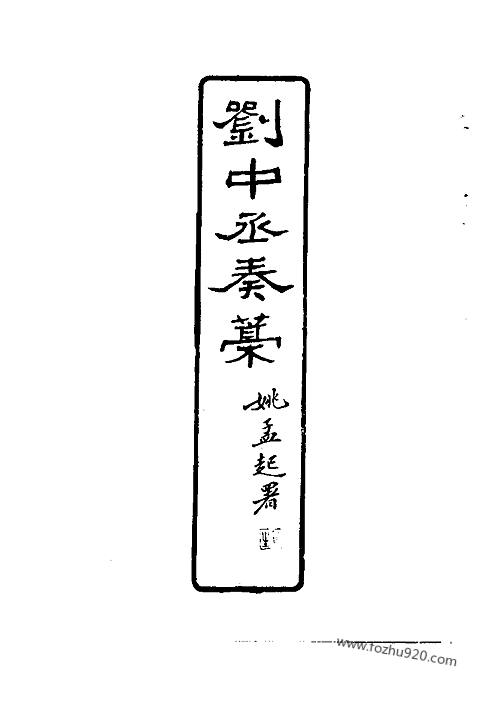 劉中丞奏藁
姚孟起署
www.fozhu920.com